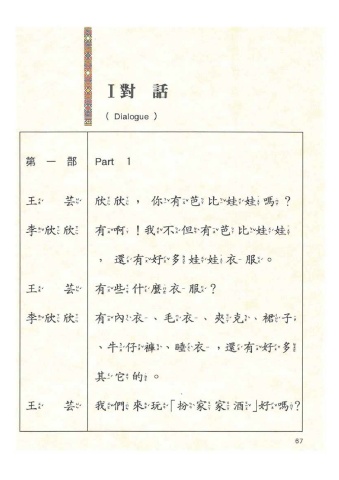 I 對 話
( Dialogue )
第 一 部 Part 1
王 芸 欣欣,你有芭比娃娃嗎?
李欣欣 有啊,!我不但有芭比娃娃
,還有好多娃娃衣服。
王 芸 有些什麼衣服?
李欣欣 有內衣、毛衣、夾克、裙子
、牛仔褲、睡衣,還有好多
其它的。
王 芸 我們來玩「扮家家酒」好嗎?
67